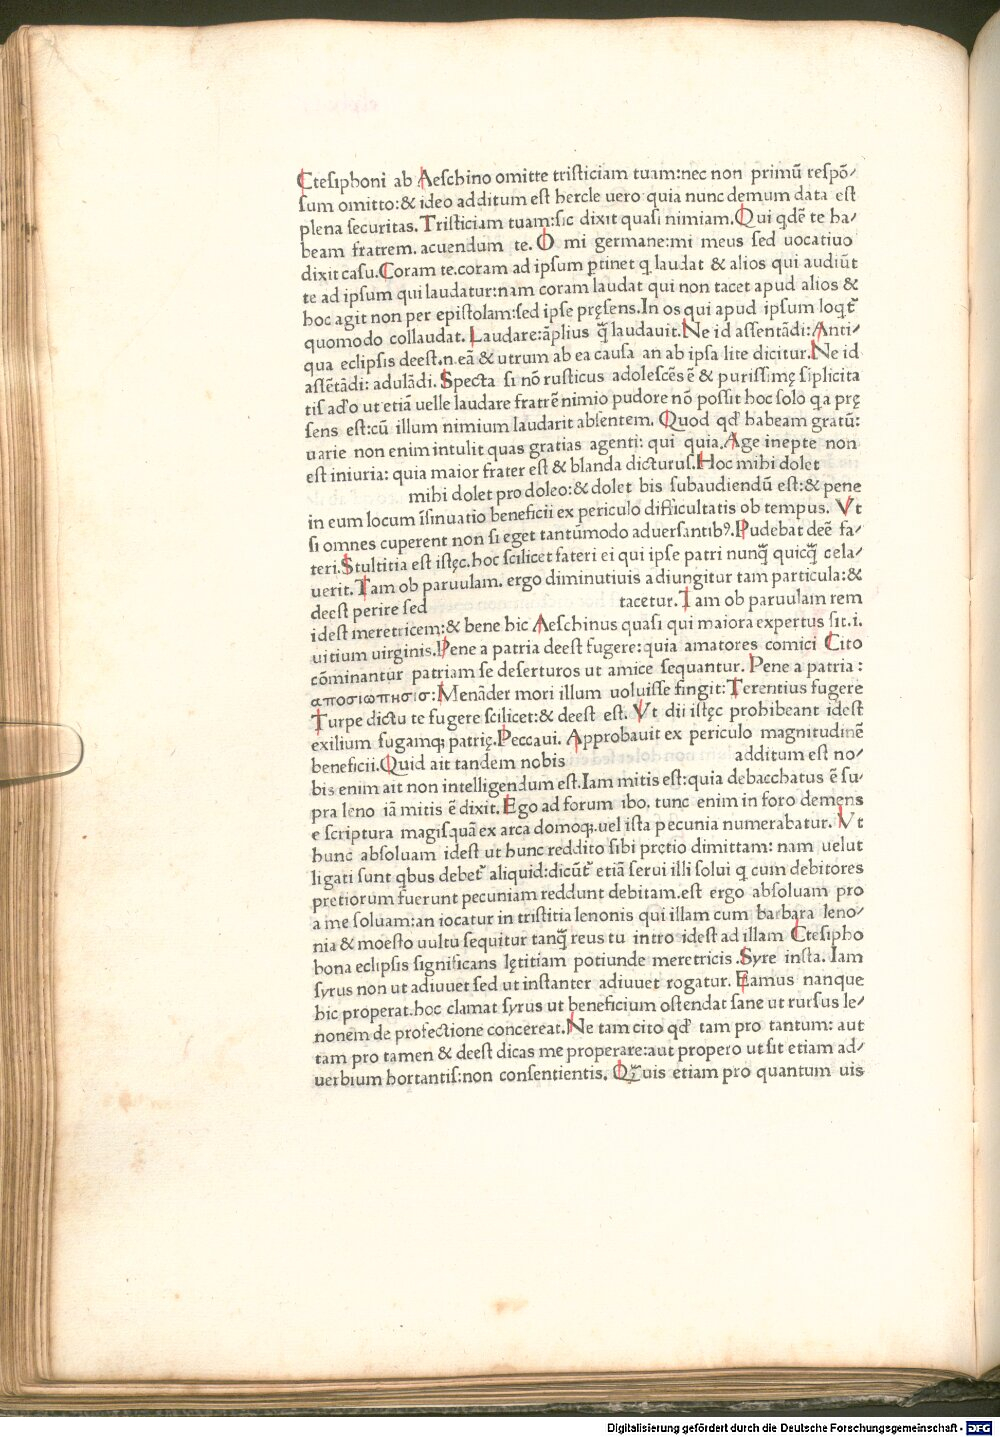 Ctesiphoni ab Aeschino omitte tristiciam tuam:nec non primū respō/
sum omitto:& ideo additum est hercle uero quia nunc demum data est
plena securitas. Tristiciam tuam:sic dixit quasi nimiam. Qui qdē te ha/
beam fratrem. acuendum te. O mi germane:mi meus sed uocatiuo
dixit casu. Coram te.coram ad ipsum ptinet q laudat & alios qui audiūt
te ad ipsum qui laudatur:nam coram laudat qui non tacet apud alios &
hoc agit non per epistolam:sed ipse pręsens.In os qui apud ipsum loqt̄
quomodo collaudat. Laudare:āplius q̄ laudauit. Ne id assentādi: Anti/
qua eclipsis deest.n.eā & utrum ab ea causa an ab ipsa lite dicitur. Ne id
assētādi: adulādi. Specta si nō rusticus adolescēs ē & purissimę siplicita
tis ad'o ut etiā uelle laudare fratrē nimio pudore nō possit hoc solo qa prę
sens est:cū illum nimium laudarit absentem. Quod qd' habeam gratū:
uarie non enim intulit quas gratias agenti: qui quia. Age inepte non
est iniuria: quia maior frater est & blanda dicturus. Hoc mihi dolet
mihi dolet pro doleo:& dolet bis subaudiendū est:& pene
in eum locum īsinuatio beneficii ex periculo difficultatis ob tempus. Vt
si omnes cuperent non si eget tantūmodo aduersantibꝰ. Pudebat deē fa/
teri. Stultitia est istęc.hoc scilicet fateri ei qui ipse patri nunq̄ quicq̄ cela/
uerit. Tam ob paruulam. ergo diminutiuis adiungitur tam particula:&
deest perire sed tacetur. Tam ob paruulam rem
idest meretricem:& bene hic Aeschinus quasi qui maiora expertus sit.i.
uitium uirginis. Pene a patria deest fugere:quia amatores comici Cito
cōminantur patriam se deserturos ut amice sequantur. Pene a patria :
αποσιωπησισ: Menāder mori illum uoluisse fingit: Terentius fugere
Turpe dictu te fugere scilicet:& deest est. Vt dii istęc prohibeant idest
exilium fugamq; patrię. Peccaui. Approbauit ex periculo magnitudinē
beneficii. Quid ait tandem nobis additum est no/
bis enim ait non intelligendum est.Iam mitis est:quia debacchatus ē su/
pra leno iā mitis ē dixit. Ego ad forum ibo. tunc enim in foro demens
e scriptura magisquā ex arca domoq;.uel ista pecunia numerabatur. Vt
hunc absoluam idest ut hunc reddito sibi pretio dimittam: nam uelut
ligati sunt qbus debet̄ aliquid:dicūt̄ etiā serui illi solui q cum debitores
pretiorum fuerunt pecuniam reddunt debitam.est ergo absoluam pro
a me soluam:an iocatur in tristitia lenonis qui illam cum barbara leno/
nia & moesto uultu sequitur tanq̄ reus tu intro idest ad illam Ctesipho
bona eclipsis significans lętitiam potiunde meretricis . Syre insta. Iam
syrus non ut adiuuet sed ut instanter adiuuet rogatur. Eamus nanque
hic properat.hoc clamat syrus ut beneficium ostendat sane ut rursus le/
nonem de profectione concereat. Ne tam cito qd' tam pro tantum: aut
tam pro tamen & deest dicas me properare:aut propero ut sit etiam ad/
uerbium hortantis:non consentientis. Qȝuis etiam pro quantum uis
Digitalisierung gefördert durch die Deutsche Forschungsgemeinschaft - DFG